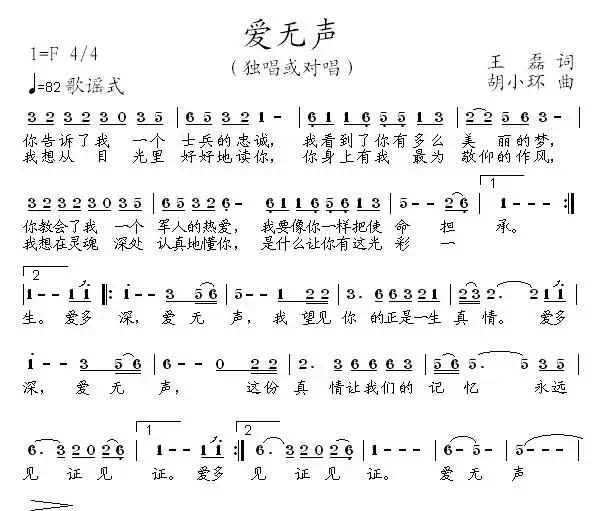 爱无声
（独唱或对唱）
1=F 4/4
王 磊 词
♩=82 歌谣式
胡小环 曲
3 2 3 2 3 0 3 5 | 6 5 3 2 1 - | 6 1 1 6 5 1 6 5 | 2 2 5 6 3 - |
你告诉了我 一个 士兵的忠诚， 我看到了你有多么 美 丽的梦，
我想从 目 光里 好好地读你， 你身上有我 最为 敬仰的作风，
3 2 3 2 3 0 3 5 | 6 5 3 2 6 - | 6 1 1 6 5 6 1 3 | 5 - - 2 6 | 1 1 - - :||
你教会了我 一个 军人的热爱， 我要像你一样把使 命 担 承。
我想在灵魂 深处 认真地懂你， 是什么让你有这光 彩 一
2 1 - - 1 1 ||: 1 - 3 5 6 | 5 - 1 2 2 | 3 . 6 6 3 2 1 | 2 3 2 - 1 1 |
生。 爱多 深， 爱 无 声， 我 望见 你 的正是一生 真 情。 爱多
1 - 3 5 6 | 6 - 0 2 2 | 2 . 3 6 6 6 3 | 5 6 . 5 3 5 |
深， 爱 无 声， 这份 真 情让我们的 记 忆 永远
6 . 3 2 0 2 6 | 1 1 - - 1 1 :|| 2 6 . 3 2 0 2 6 | 1 - - | 6 - 1 2 | 1 - - - ||
见 证见 证。 爱多 见 证见 证。 爱 无 声